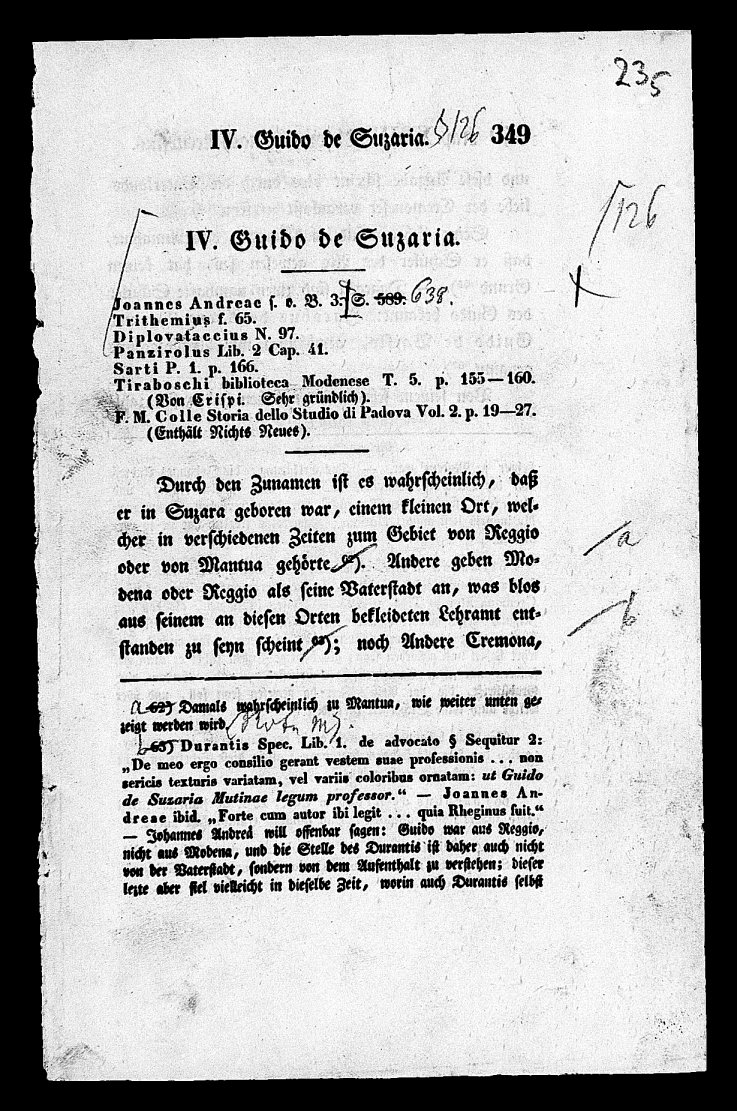 235
IV. Guido de Suzaria. 349
126
IV. Guido de Suzaria.
Joannes Andreae s. o. B. 3. S. 589. 638.
Trithemius f. 65.
Diplovataccius N. 97.
Panzirolus Lib. 2 Cap. 41.
Sarti P. 1. p. 166.
Tiraboschi biblioteca Modenese T. 5. p. 155—160.
(Von Crispi. Sehr gründlich).
F. M. Colle Storia dello Studio di Padova Vol. 2. p. 19—27.
(Enthält Nichts Neues).
Durch den Zunamen ist es wahrscheinlich, daß
er in Suzara geboren war, einem kleinen Ort, wel-
cher in verschiedenen Zeiten zum Gebiet von Reggio
oder von Mantua gehörte 62). Andere geben Mo- a
dena oder Reggio als seine Vaterstadt an, was blos
aus seinem an diesen Orten bekleideten Lehramt ent- b
standen zu seyn scheint 63); noch Andere Cremona,
a 62) Damals wahrscheinlich zu Mantua, wie weiter unten ge-
zeigt werden wird.
b 63) Durantis Spec. Lib. 1. de advocato § Sequitur 2:
„De meo ergo consilio gerant vestem suae professionis . . . non
sericis texturis variatam, vel variis coloribus ornatam: ut Guido
de Suzaria Mutinae legum professor.“ — Joannes An-
dreae ibid. „Forte cum autor ibi legit . . . quia Rheginus fuit.“
— Johannes Andreä will offenbar sagen: Guido war aus Reggio,
nicht aus Modena, und die Stelle des Durantis ist daher auch nicht
von der Vaterstadt, sondern von dem Aufenthalt zu verstehen; dieser
lezte aber fiel vielleicht in dieselbe Zeit, worin auch Durantis selbst